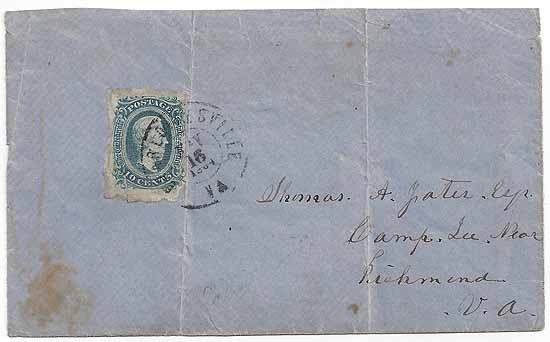 POSTAGE
10 CENTS
SVILLE
16
VA
Thomas A. Yates Esq.
Camp. Lee. Near
Richmond
V. a.